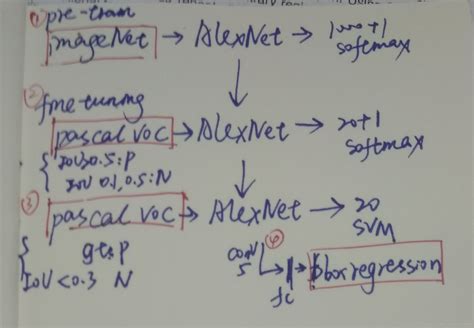 ① pre-train
imageNet → AlexNet → 1000+1
softmax
② fine-tuning
pascal VOC → AlexNet → 20+1
softmax
{ IOU>0.5:P
IOU 0.1,0.5:N
③ pascal VOC → AlexNet → 20
SVM
{ gts P
IoU<0.3 N
④
conv
5
fc
bbox regression